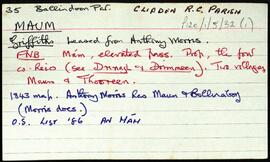 35 Ballindoon Par. CLIFDEN R.C. PARISH
P120/1/5/32 (1)
MAUM
Griffiths Leased from Anthony Morris.
FNB. Mám, elevated pass. Prop, the four
co-heirs (see and ). Two villages
Maum &
1843 map. Anthony Morris Res Maum &
(Morris docs).
O.S. LIST '86 AN MÁM